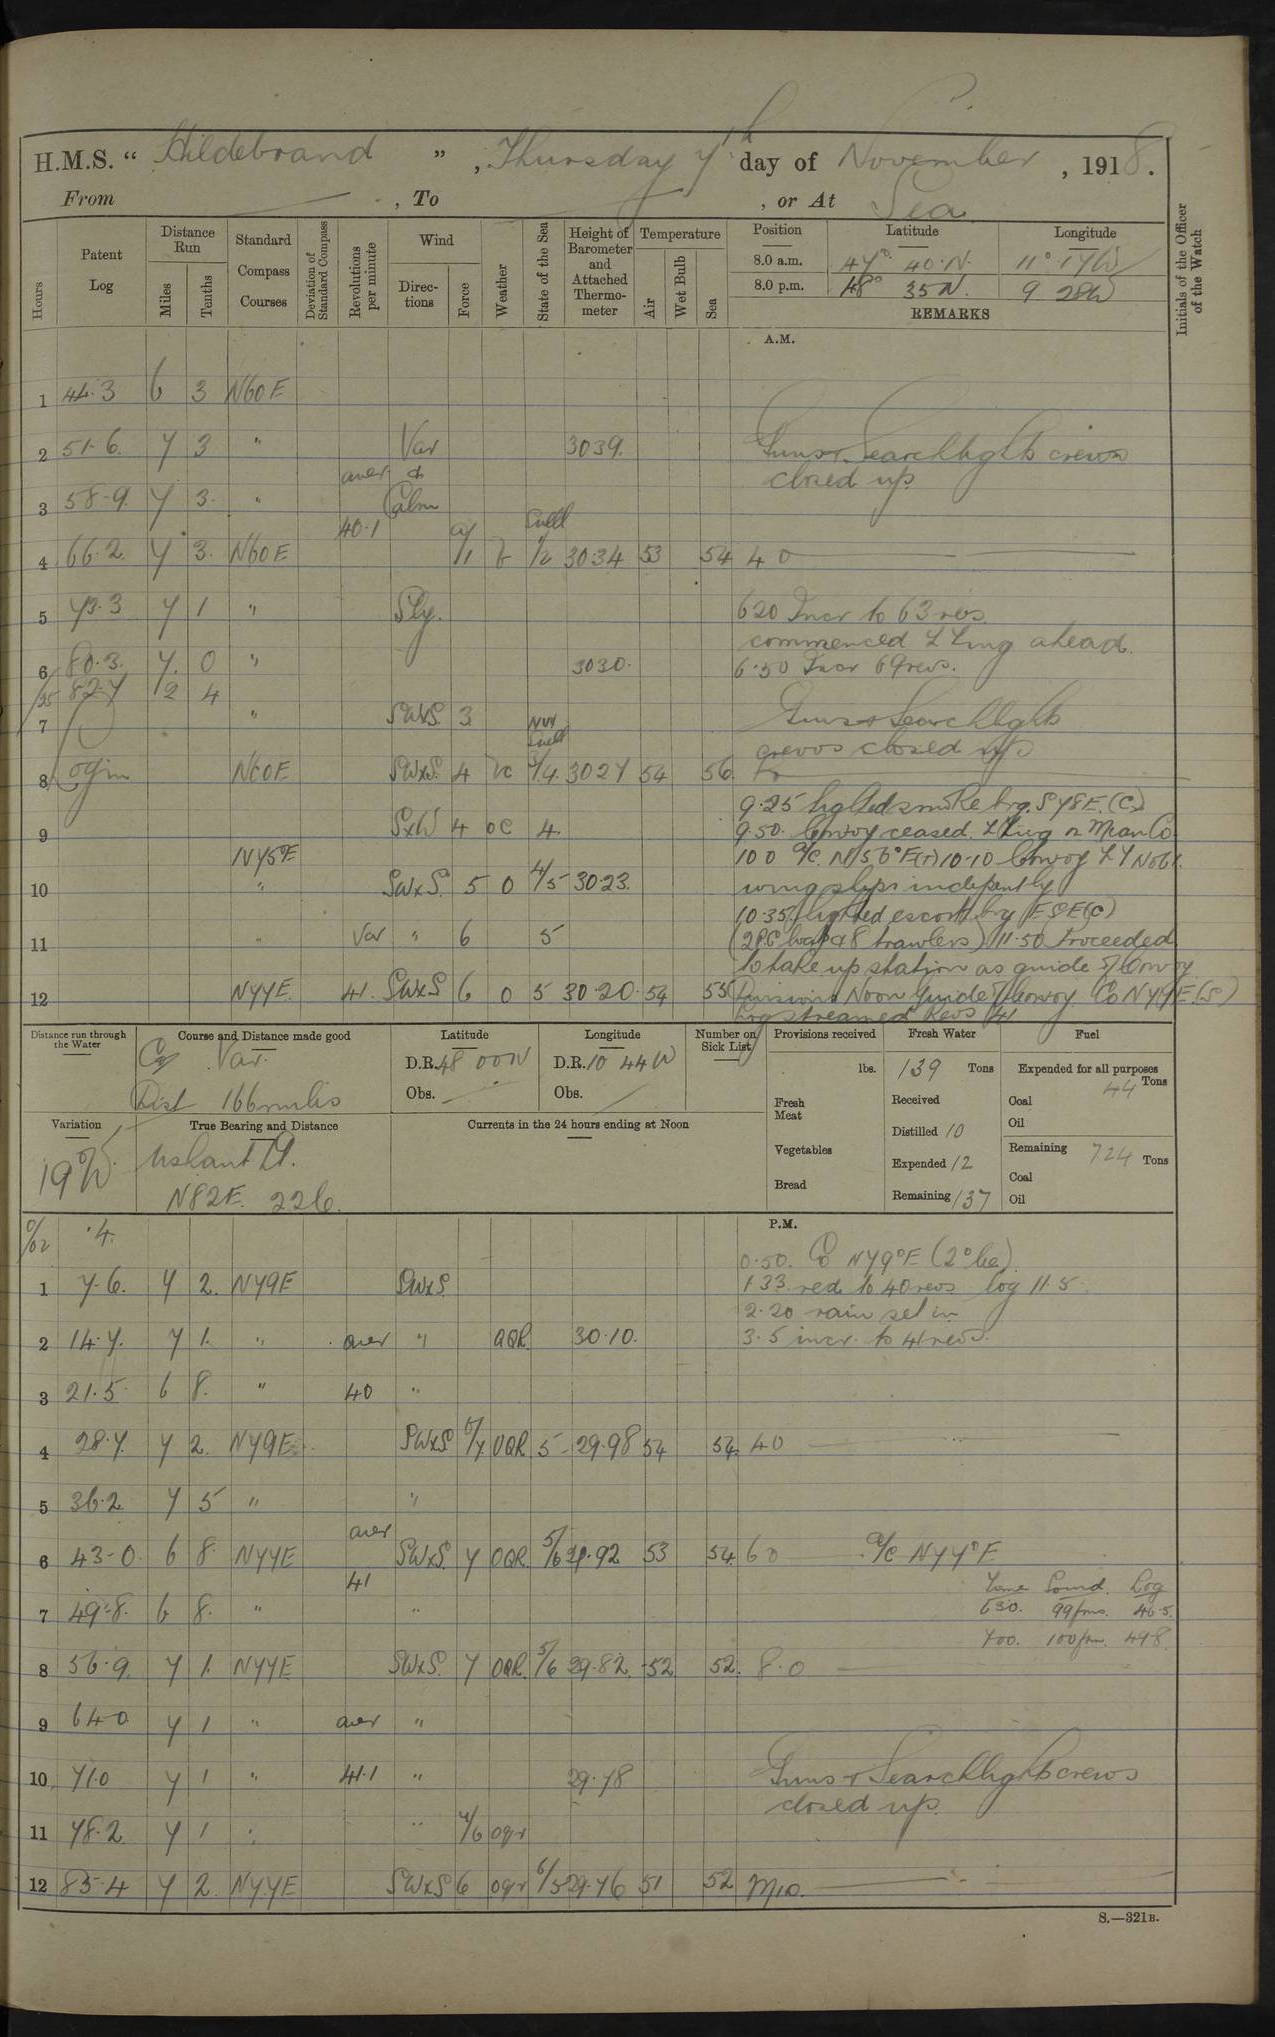 H.M.S. " Hildebrand ", Thursday 7th day of November, 1918.
From , To , or At Sea
Hours
Patent Log
Distance Run
Miles
Tenths
Standard Compass Courses
Deviation of Standard Compass
Revolutions per minute
Wind
Directions
Force
Weather
State of the Sea
Height of Barometer and Attached Thermometer
Temperature
Air
Wet Bulb
Sea
Position Latitude Longitude
8.0 a.m. 47° 40·N. 11° 17W
8.0 p.m. 48° 35N. 9 28W
REMARKS
Initials of the Officer of the Watch
A.M.
1 44·3 6 3 N60E
2 51·6 7 3 " Var 3039. Guns & Searchlights crews
aver &
closed up
3 58·9 7 3· " Calm
40·1
4 66·2 7 3· N60E 0/1 b 1/2 3034 53 54 4 0
5 73·3 7 1 " Sly. 620 Incr to 63 revs.
commenced ahead.
6 80·3 7· 0 " 3030· 6·50 Incr 69 revs.
/25 82·7 2 4
7 " SWxS. 3 Guns & Searchlights
crews closed up
8 N60E SWxS. 4 bc 3/4 3027 54 56
9·25 sighted smoke brg. S78E.(C)
9 SxW 4 oc 4· 9·50· Convoy ceased.
N75°E 10 0 a/c. N56°E(T) 10·10 Convoy
10 " SWxS. 5 O 4/5 30·23.
10·35 sighted escort brg ESE(C)
11 " Var " 6 5 (2 P.C boats & 8 trawlers) 11·50 Proceeded
to take up station as guide of Convoy
12 N77E. 41· SWxS 6 O 5 30·20· 54 55 Noon Guide of Convoy. Co N79E.(S)
Log streamed Revs 41
Distance run through the Water
Course and Distance made good
Co Var.
Dist 166 miles
Latitude
D.R. 48 00N
Obs.
Longitude
D.R. 10 44W
Obs.
Number on Sick List
Provisions received
lbs.
Fresh Meat
Vegetables
Bread
Fresh Water
139 Tons
Received
Distilled 10
Expended 12
Remaining 137
Fuel
Expended for all purposes
44 Tons
Coal
Oil
Remaining 724 Tons
Coal
Oil
Variation
19°W.
True Bearing and Distance
Ushant Lt.
N82E. 226.
Currents in the 24 hours ending at Noon
P.M.
0/02 ·4.
0·50. Co N79°E (2° )
1 7·6. 7 2. N79E SWxS. 133 red to 40 revs log 11·5
2·20 rain set in
2 14·7. 7 1. " aver " OQR 30·10. 3·5 incr. to 41 revs.
3 21·5 6 8. " 40 "
4 28·7. 7 2. N79E SWxS 6/7 OQR 5 29·98 54 54. 4 0
5 36·2 7 5 " "
aver
6 43·0· 6 8 N77E SWxS. 7 OQR. 5/6 29·92 53 54. 6 0 a/c N77°E
41
Time Sound. Log
7 49·8. 6 8. " " 630. 99fms. 46·5.
700. 100fm. 498
8 56·9. 7 1. N77E SWxS. 7 OQR. 5/6 29·82. 52 52. 8·0
9 64·0 7 1 " aver "
10 71·0 7 1 " 41·1 " 29·78 Guns & Searchlights crews
closed up.
11 78·2 7 1 " " 7/6 oqr
12 85·4 7 2. N77E SWxS 6 oqr 6/5 29·76 51 52 Mid.
S.—321B.